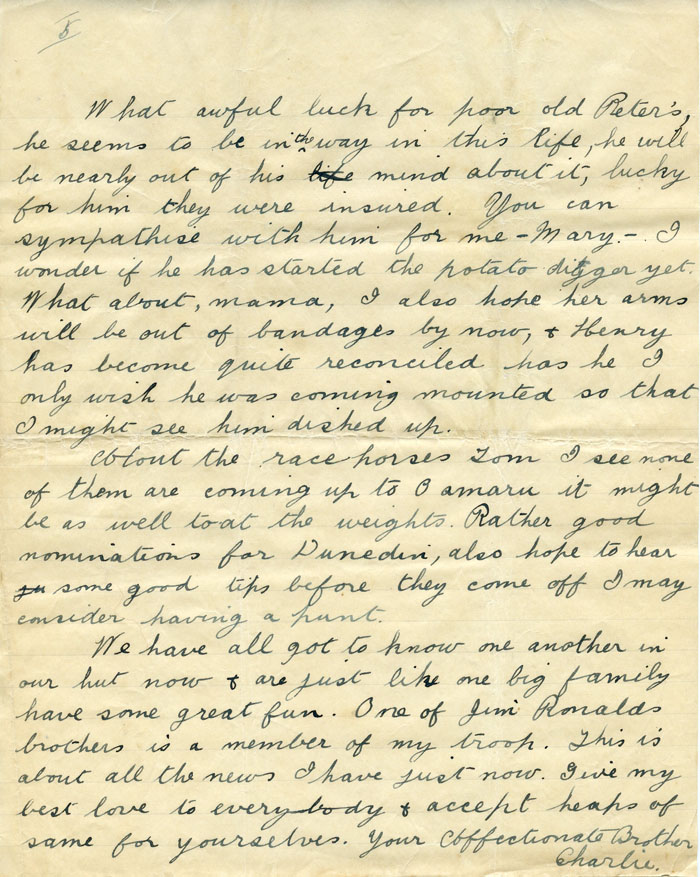 5
What awful luck for poor old Peter's,
he seems to be in the way in this life, he will
be nearly out of his life mind about it, lucky
for him they were insured. You can
sympathise with him for me - Mary. - I
wonder if he has started the potato digger yet.
What about, mama, I also hope her arms
will be out of bandages by now, & Henry
has become quite reconciled has he I
only wish he was coming mounted so that
I might see him dished up.
About the race horses Tom I see none
of them are coming up to Oamaru it might
be as well to at the weights. Rather good
nominations for Dunedin, also hope to hear
some good tips before they come off I may
consider having a punt.
We have all got to know one another in
our hut now & are just like one big family
have some great fun. One of Jim Ronalds
brothers is a member of my troop. This is
about all the news I have just now. Give my
best love to everybody & accept heaps of
same for yourselves. Your Affectionate Brother
Charlie.